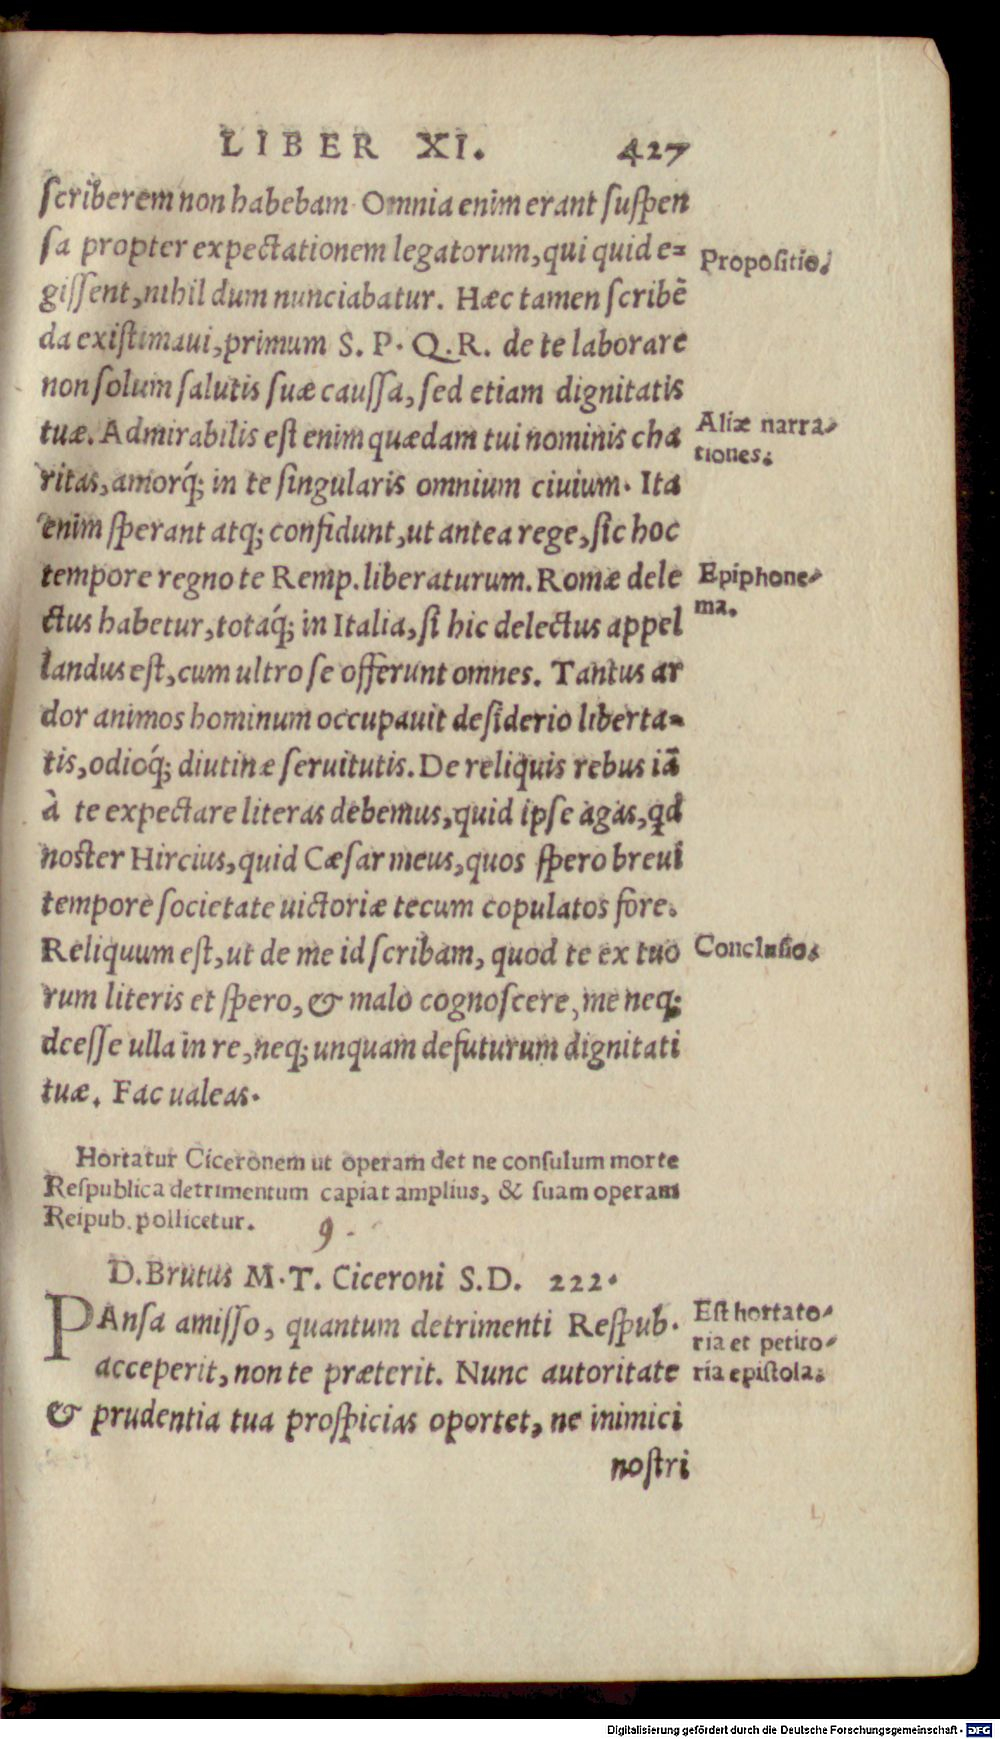 LIBER XI. 427
scriberem non habebam. Omnia enim erant suspen
sa propter expectationem legatorum, qui quid e=
gissent, nihil dum nunciabatur. Hæc tamen scribē
da existimaui, primum S. P. Q. R. de te laborare
non solum salutis suæ caussa, sed etiam dignitatis
tuæ. Admirabilis est enim quædam tui nominis cha
ritas, amorq́; in te singularis omnium ciuium. Ita
enim sperant atq; confidunt, ut antea rege, sic hoc
tempore regno te Remp. liberaturum. Romæ dele
ctus habetur, totaq́; in Italia, si hic delectus appel
landus est, cum ultro se offerunt omnes. Tantus ar
dor animos hominum occupauit desiderio liberta=
tis, odioq́; diutinæ seruitutis. De reliquis rebus iā
à te expectare literas debemus, quid ipse agas, qd
noster Hircius, quid Cæsar meus, quos spero breui
tempore societate uictoriæ tecum copulatos fore.
Reliquum est, ut de me id scribam, quod te ex tuo
rum literis et spero, & malo cognoscere, me neq;
deesse ulla in re, neq; unquam defuturum dignitati
tuæ. Fac ualeas.
Propositio.
Aliæ narra=
tiones.
Epiphone=
ma.
Conclusio.
Hortatur Ciceronem ut operam det ne consulum morte
Respublica detrimentum capiat amplius, & suam operam
Reipub. pollicetur.
9.
D. Brutus M. T. Ciceroni S. D. 222.
PAnsa amisso, quantum detrimenti Respub.
acceperit, non te præterit. Nunc autoritate
& prudentia tua prospicias oportet, ne inimici
nostri
Est hortato=
ria et petito=
ria epistola.
Digitalisierung gefördert durch die Deutsche Forschungsgemeinschaft - DFG